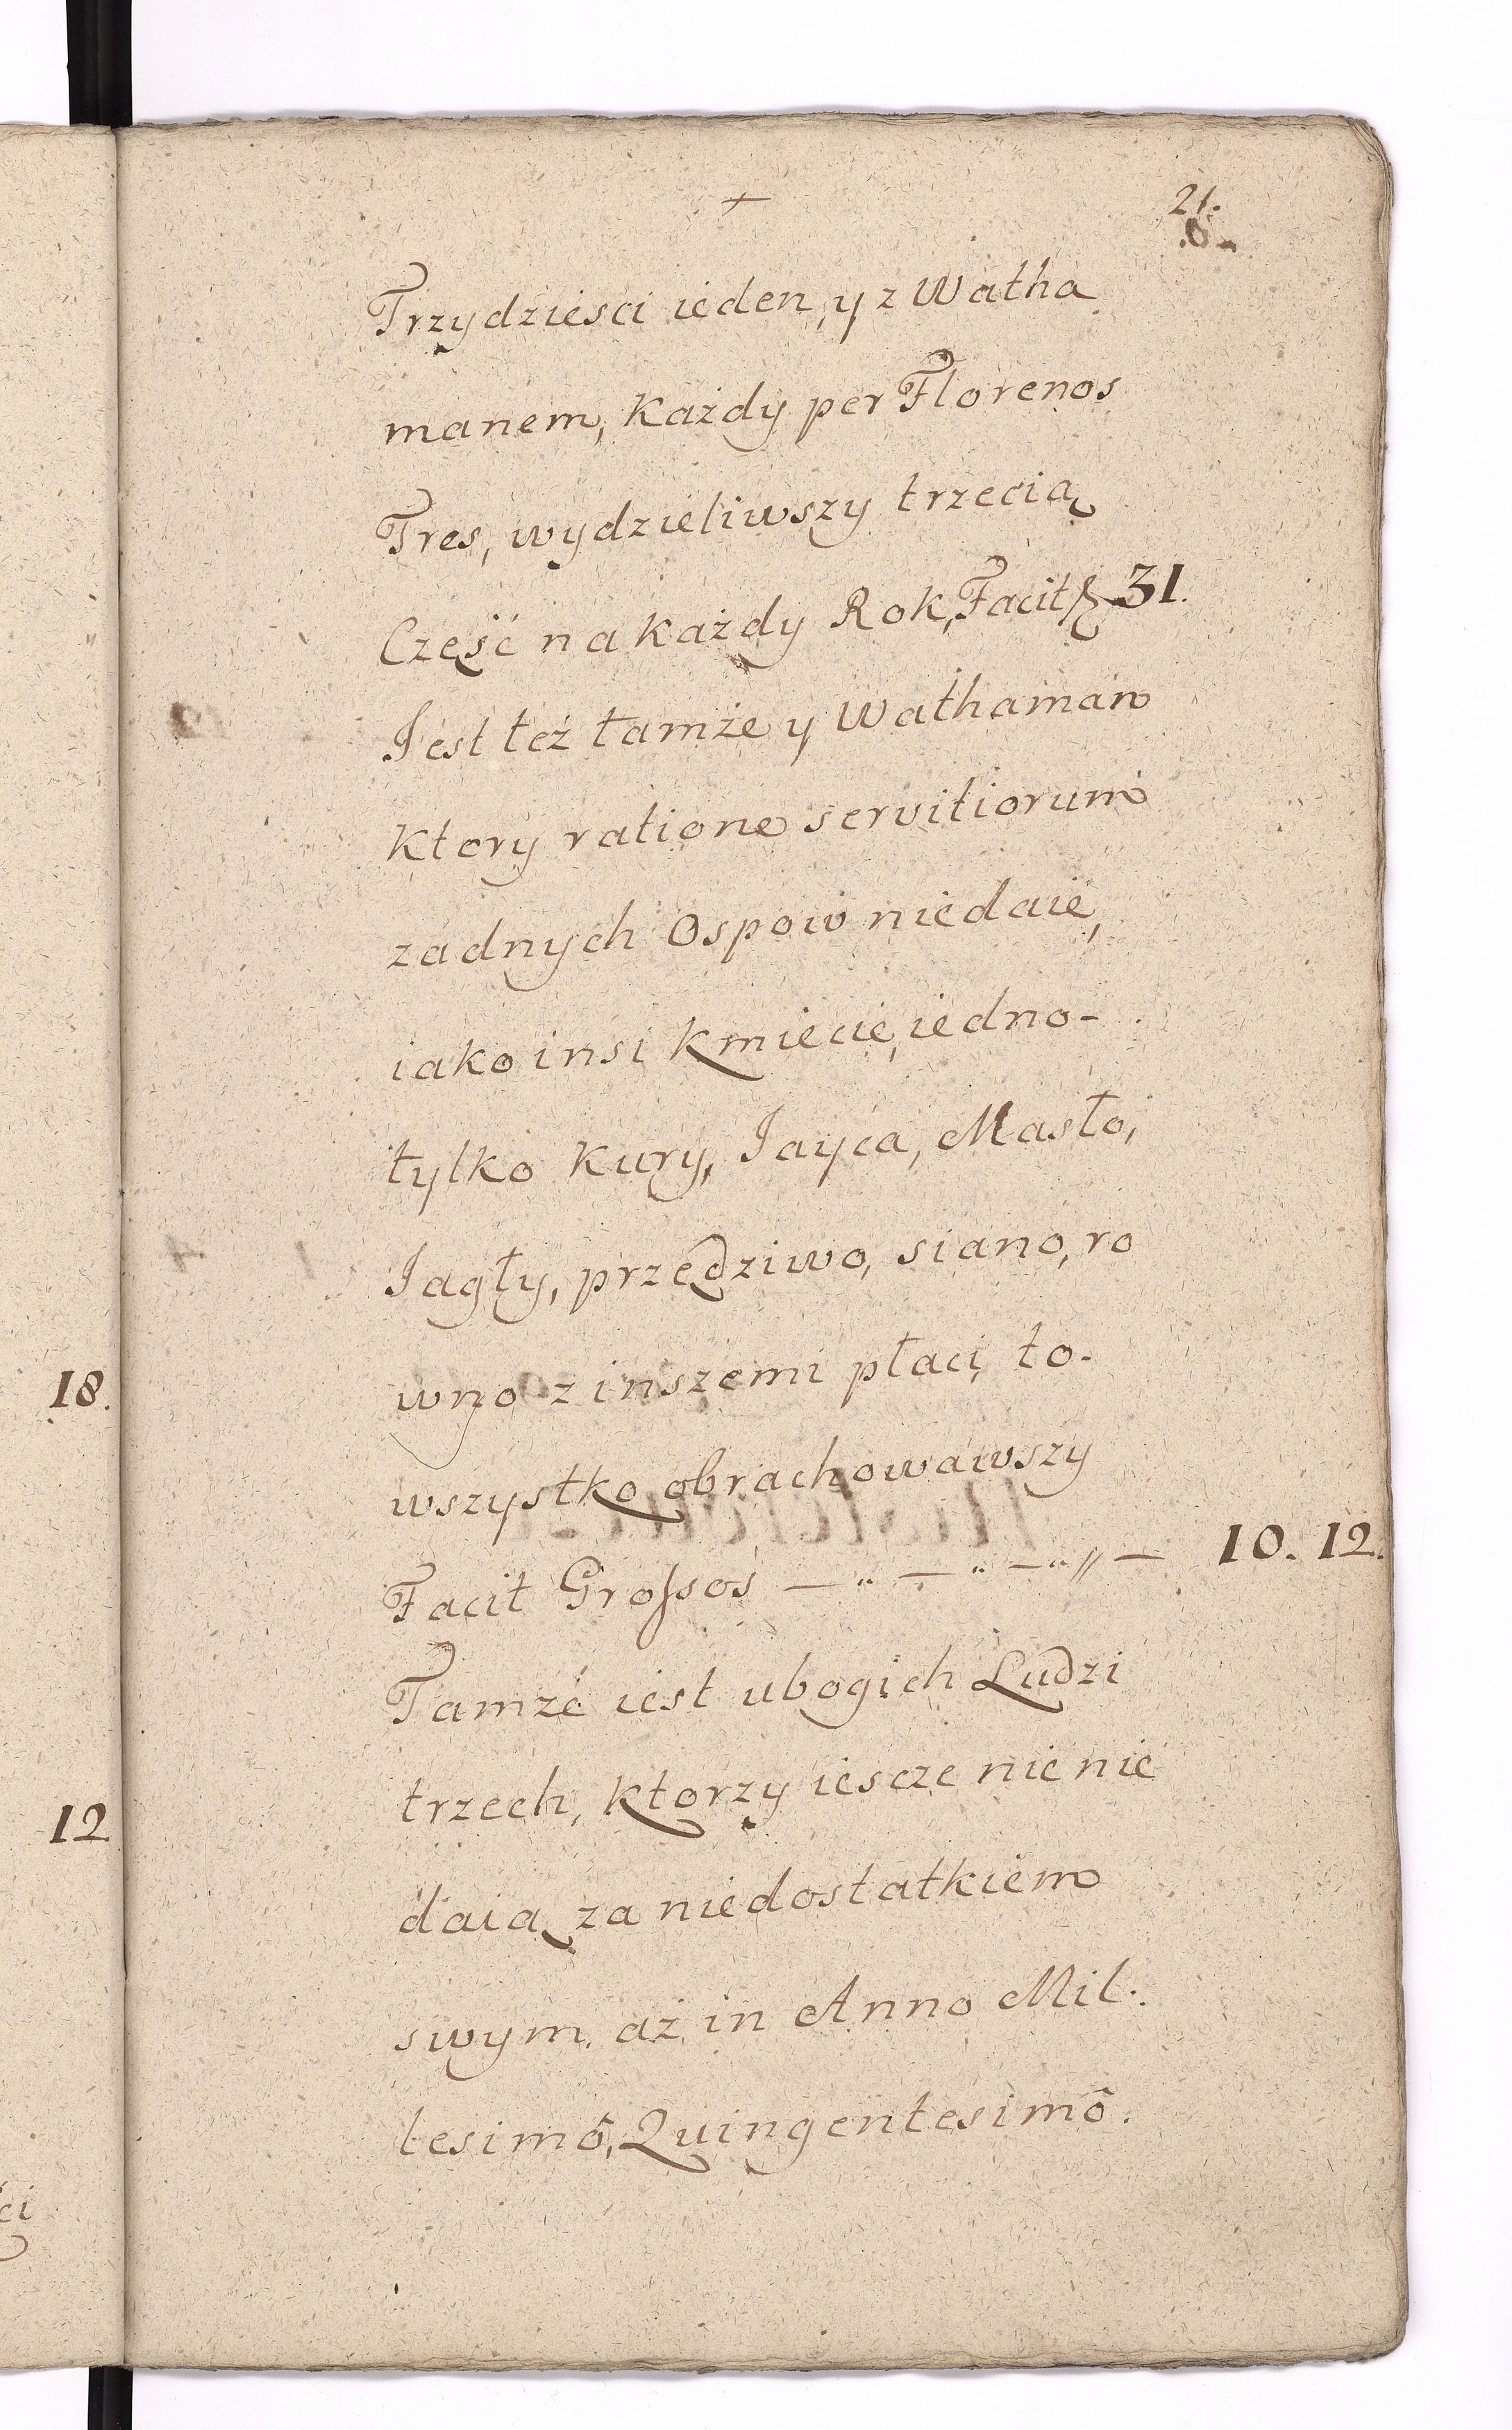 21.
Trzydziesci ieden, y z Watha
manem, Każdy per Florenos
Tres, wydzieliwszy trzecią
Część na Każdy Rok, Facit 31.
Jest też tamże y Wathaman
Ktory ratione servitiorum
zadnych Ospow niedaie,
iako insi Kmiecie, iedno-
tylko Kury, Jayca, Masło,
Jagły, przędziwo, siano, ro
wno z inszemi płaci, to.
wszystko obrachowawszy
Facit Grossos — " — " — " // — 10. 12.
Tamże iest ubogich Ludzi
trzech, Ktorzy iescze nic nie
daią za niedostatkiem
swym, aż in Anno Mil.
lesimô, Quingentesimô.
18.
12.